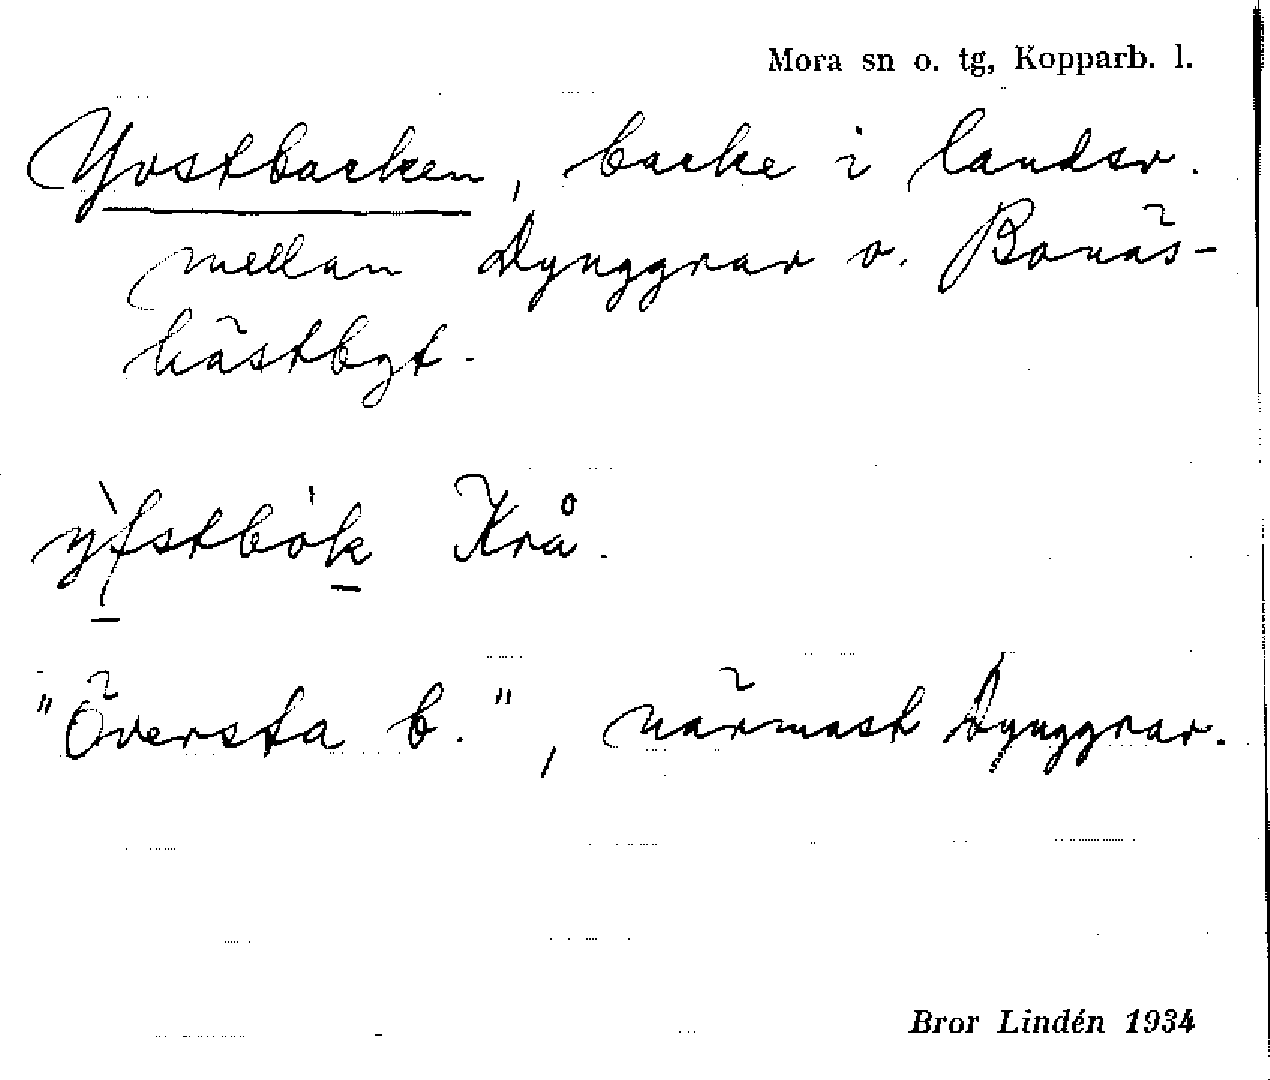 Mora sn o. tg, Kopparb. l.
Yvstbacken, backe i landsv.
mellan Dynggrav o. Bonäs-
hästbgt.
y̍fstbo̍k Krå.
"Översta b.", närmast Dynggrav.
Bror Lindén 1934